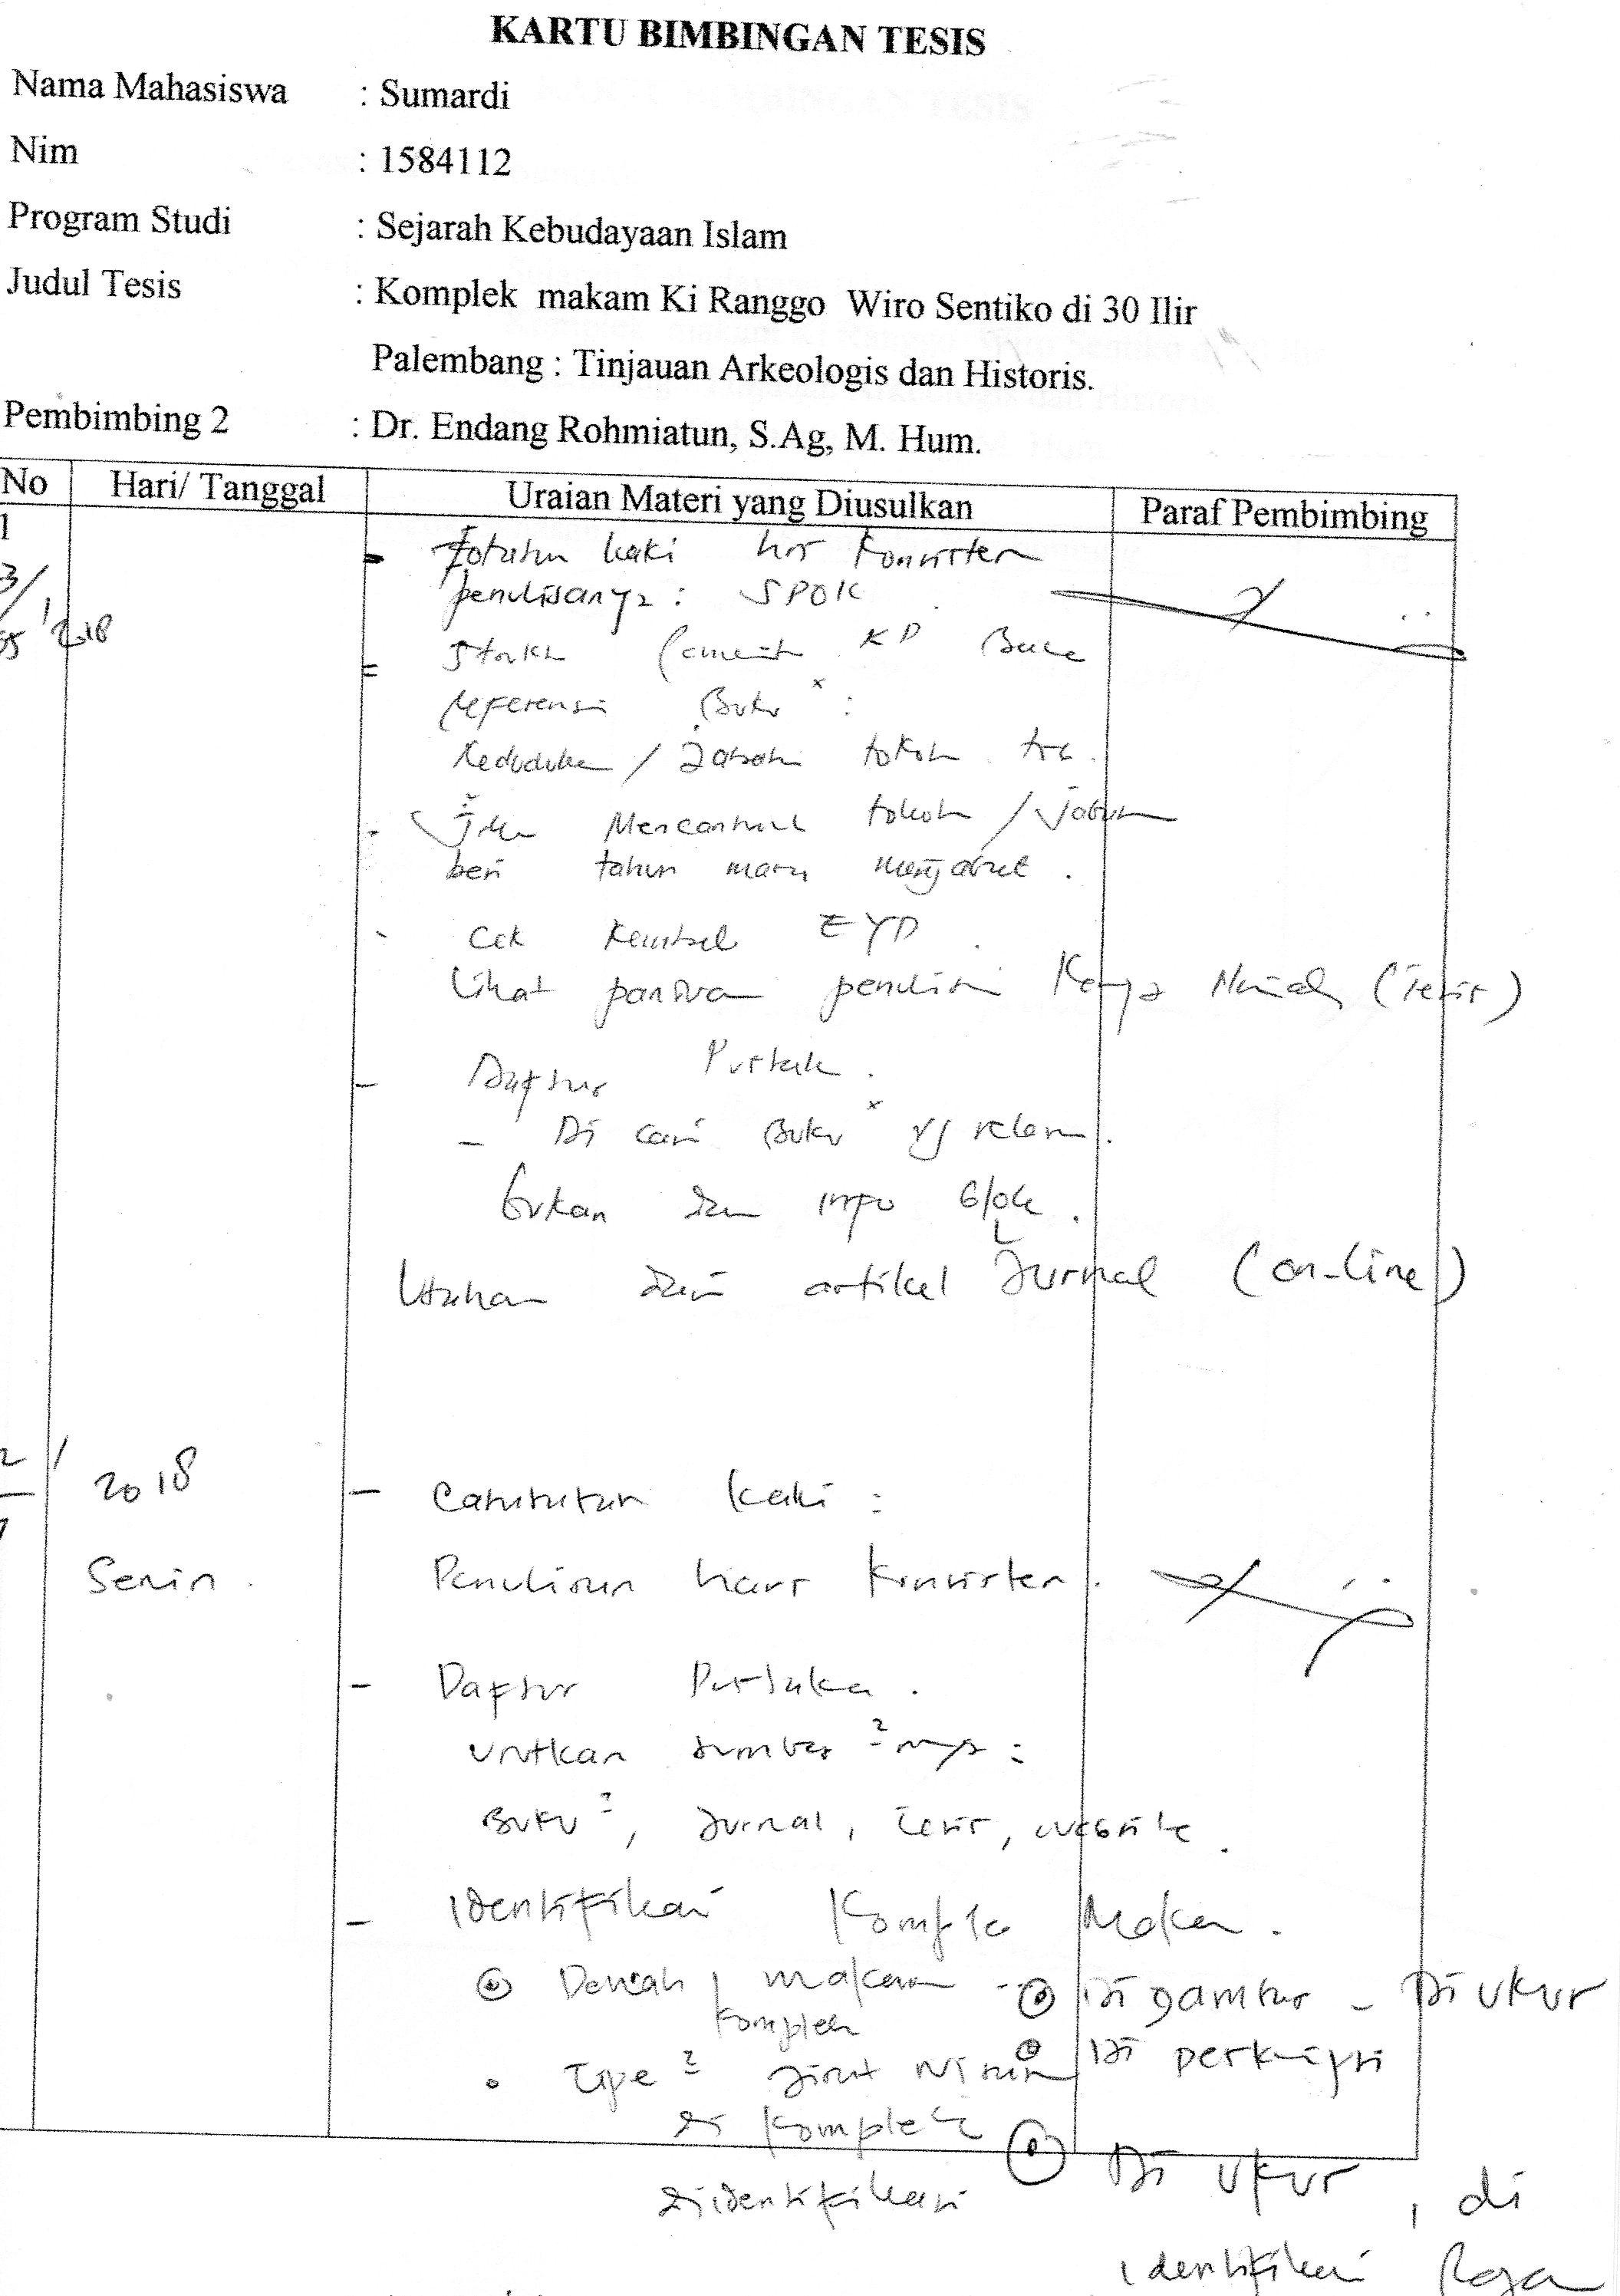 KARTU BIMBINGAN TESIS
Nama Mahasiswa : Sumardi
Nim : 1584112
Program Studi : Sejarah Kebudayaan Islam
Judul Tesis : Komplek makam Ki Ranggo Wiro Sentiko di 30 Ilir
Palembang : Tinjauan Arkeologis dan Historis.
Pembimbing 2 : Dr. Endang Rohmiatun, S.Ag, M. Hum.
No Hari/ Tanggal Uraian Materi yang Diusulkan Paraf Pembimbing
1
- kaki hrs Konsisten
penulisannya : SPOK
KP Baca
referensi Buku
Kedudukan / Jabatan tokoh
tokoh / Jabatan
beri tahun menjabat .
- Cek Kembali EYD
Lihat panduan penulisan Karya Ilmiah (Tesis)
- Daftar Pustaka .
- Di cari Buku yg relevan .
bukan dari info blok .
Utuhan dari artikel Jurnal (on-line)
2018
Senin
- Catatan kaki :
Penulisan harus Konsisten .
- Daftar Pustaka .
Urutkan sumber ²nya :
Buku ², Jurnal, Tesis, website .
- Identifikasi Komplek Makam .
Denah makam Di gambar - Di ukur
Komplek
Tipe ² Jirat Nisan Di perkripsi
di Komplek
diidentifikasi Di ukur , di
Identifikasi